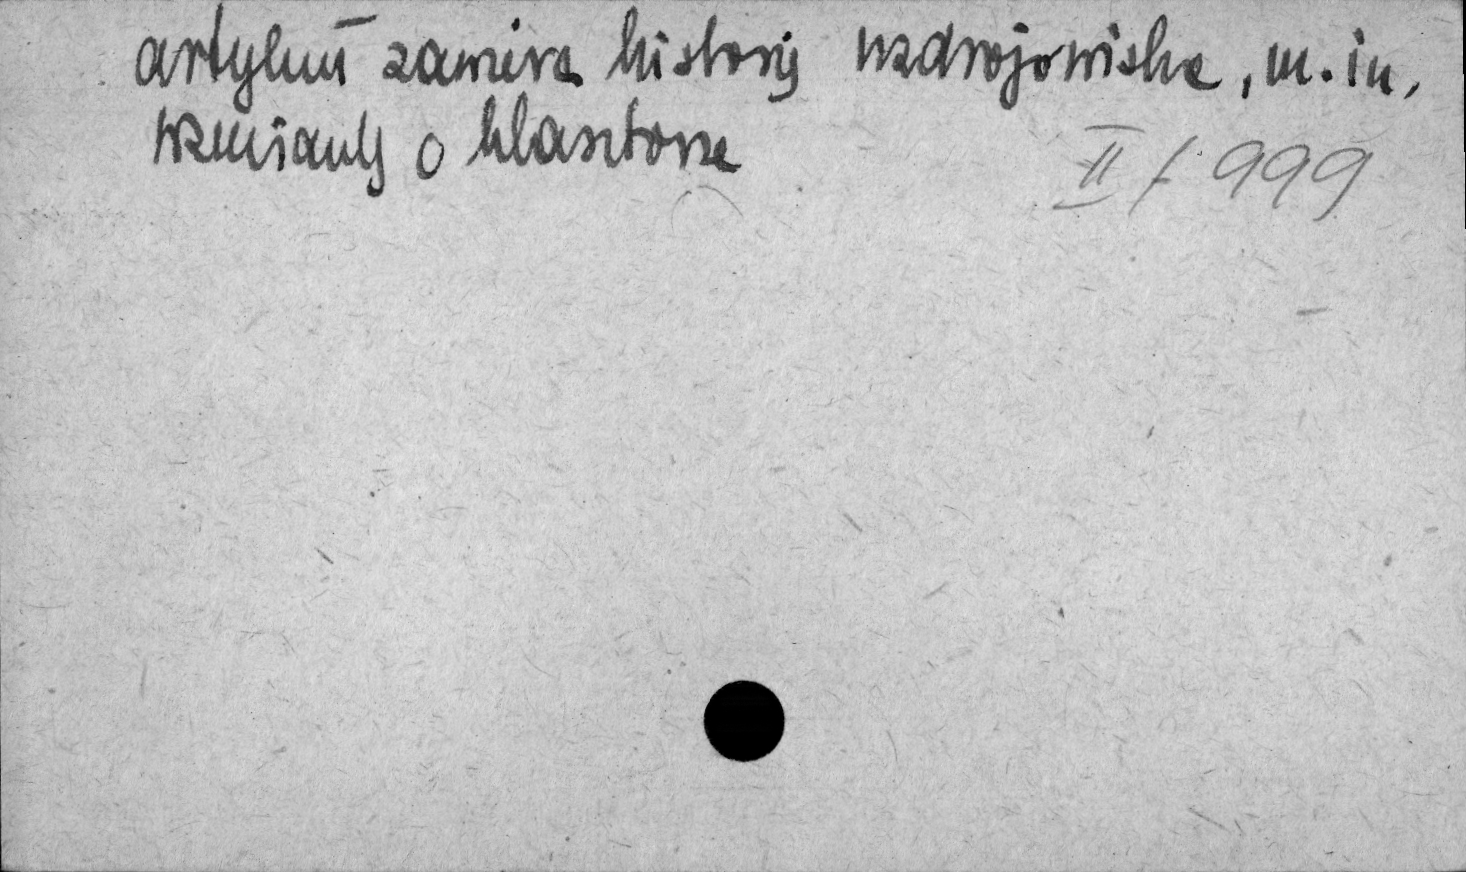 artykuł zawiera historię uzdrojowiska, m.in.
wzmiankę o klasztorze
II / 999